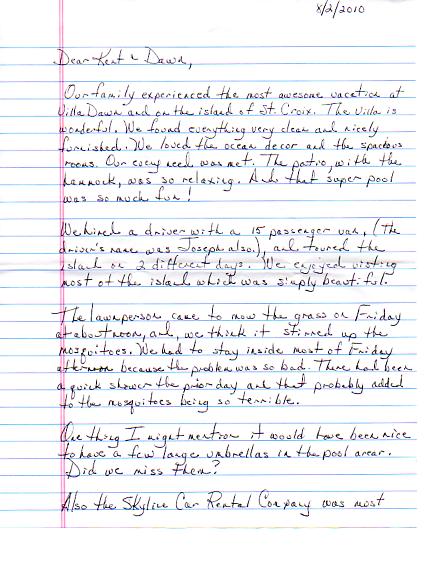 8/2/2010
Dear Kent & Dawn,
Our family experienced the most awesome vacation at
Villa Dawn and on the island of St. Croix. The villa is
wonderful. We found everything very clean and nicely
furnished. We loved the ocean decor and the spacious
rooms. Our every need was met. The patio, with the
hammock, was so relaxing. And that super pool
was so much fun!
We hired a driver with a 15 passenger van, (The
driver's name was Joseph also), and toured the
island on 2 different days. We enjoyed visting
most of the island which was simply beautiful.
The lawnperson came to mow the grass on Friday
at about noon, and, we think it stirred up the
mosquitoes. We had to stay inside most of Friday
afternoon because the problem was so bad. There had been
a quick shower the prior day and that probably added
to the mosquitoes being so terrible.
One thing I might mention it would have been nice
to have a few large umbrellas in the pool area.
Did we miss them?
Also the Skyline Car Rental Company was most